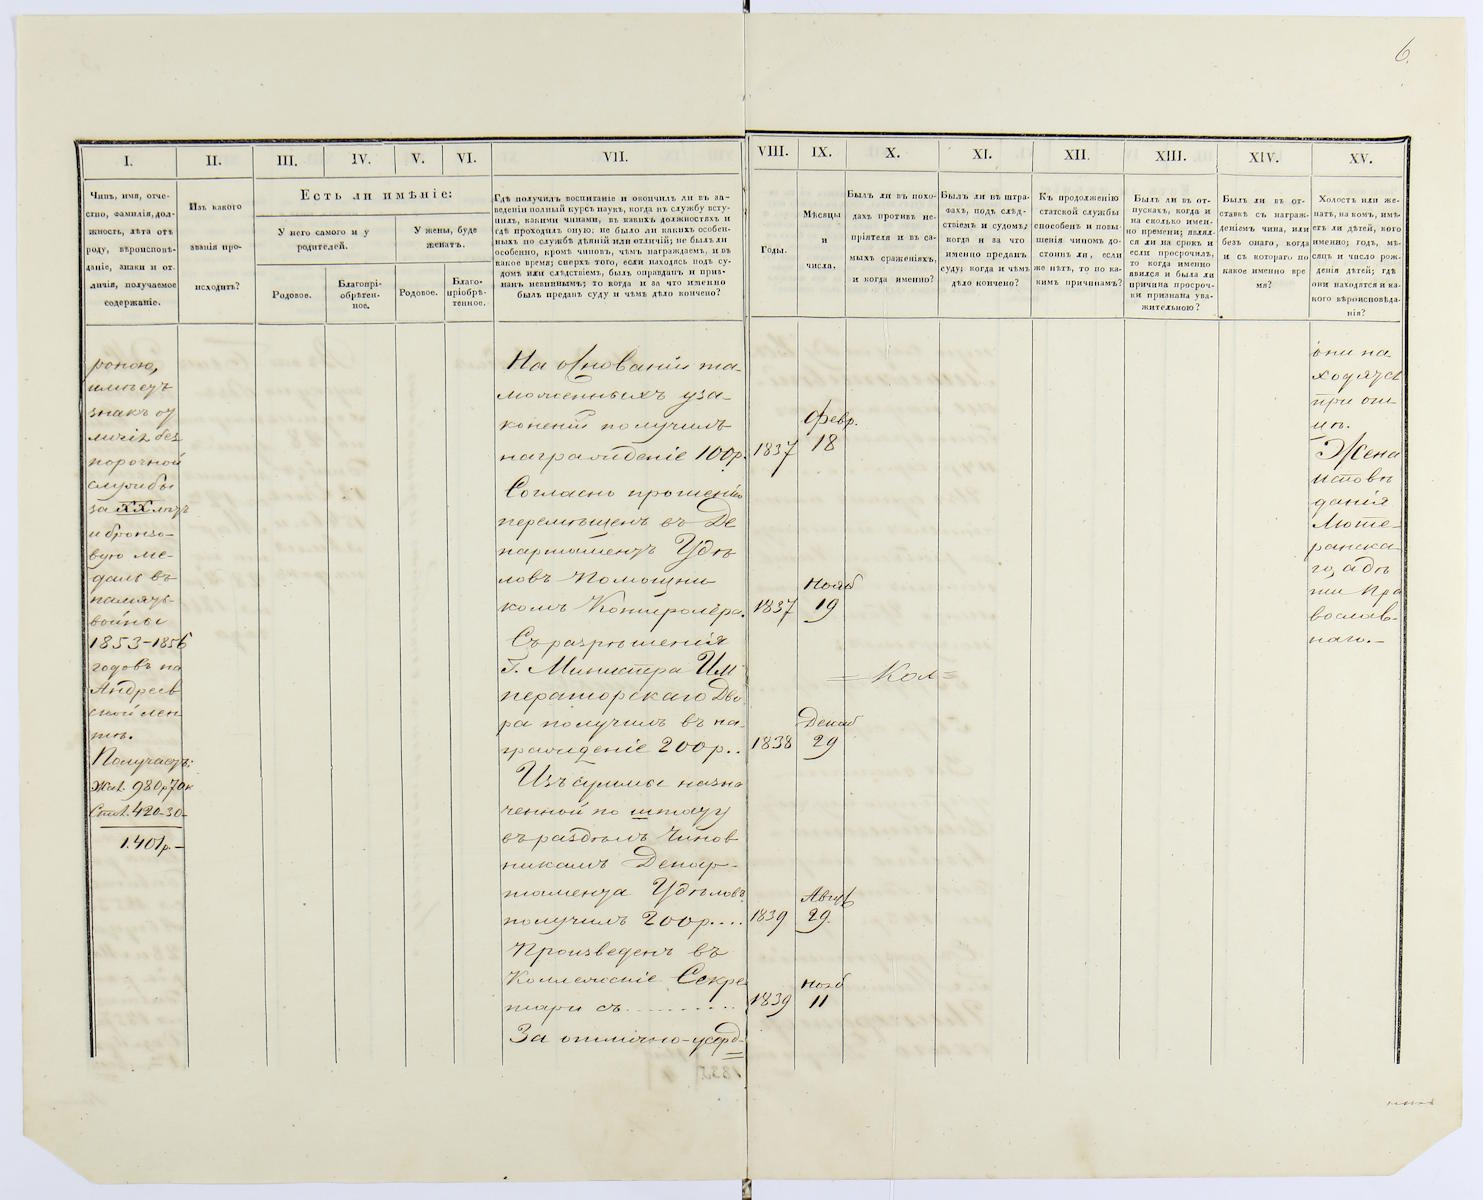 6.
I.
II.
III.
IV.
V.
VI.
VII.
VIII.
IX.
X.
XI.
XII.
XIII.
XIV.
XV.
Чинъ, имя, отче-
ство, фамилія, дол-
жность, лѣта отъ
роду, вѣроисповѣ-
даніе, знаки и от-
личія, получаемое
содержаніе.
Изъ какого
званія про-
исходитъ?
Есть ли имѣніе:
У него самого и у
родителей.
У жены, буде
женатъ.
Родовое.
Благопрі-
обрѣтен-
ное.
Родовое.
Благо-
пріобрѣ-
тенное.
Гдѣ получилъ воспитаніе и окончилъ ли въ за-
веденіи полный курсъ наукъ, когда въ службу всту-
пилъ, какими чинами, въ какихъ должностяхъ и
гдѣ проходилъ оную; не было ли какихъ особен-
ныхъ по службѣ дѣяній или отличій; не былъ ли
особенно, кромѣ чиновъ, чѣмъ награждаемъ, и въ
какое время; сверхъ того, если находясь подъ су-
домъ или слѣдствіемъ, былъ оправданъ и приз-
нанъ невиннымъ; то когда и за что именно
былъ преданъ суду и чѣмъ дѣло кончено?
Годы.
Мѣсяцы
и
числа.
Былъ ли въ похо-
дахъ противъ не-
пріятеля и въ са-
мыхъ сраженіяхъ,
и когда именно?
Былъ ли въ штра-
фахъ, подъ слѣд-
ствіемъ и судомъ;
когда и за что
именно преданъ
суду; когда и чѣмъ
дѣло кончено?
Къ продолженію
статской службы
способенъ и повы-
шенія чиномъ до-
стоинъ ли, если
же нѣтъ, то по ка-
кимъ причинамъ?
Былъ ли въ от-
пускахъ, когда и
на сколько имен-
но времени; являл-
ся ли на срокъ и
если просрочилъ,
то когда именно
явился и была ли
причина просроч-
ки признана ува-
жительною?
Былъ ли въ от-
ставкѣ съ награж-
деніемъ чина, или
безъ онаго, когда
и съ котораго по
какое именно вре
мя?
Холостъ или же-
натъ, на комъ, имѣ-
етъ ли дѣтей, кого
именно; годъ, мѣ-
сяцъ и число рож-
денія дѣтей; гдѣ
они находятся и ка-
кого вѣроисповѣда-
нія?
роною,
имѣетъ
знакъ от
личія без
порочной
службы
за XX лѣтъ
и бронзо-
вую ме-
даль въ
память
войны
1853-1856
годовъ на
Андреев
ской лен
тѣ.
Получаетъ:
Жал. 980р70к
Стол. 420-30-
1.401р.-
На основаніи та-
моженныхъ уза-
коненій получилъ
награжденіе 100р.
1837
Февр.
18
Согласно прошенію
перемѣщенъ въ Де
партаментъ Удѣ
ловъ Помощни
комъ Контролера.
1837
Нояб
19
Съ разрѣшенія
Г. Министра Им
ператорскаго Дво
ра получилъ въ на-
гражденіе 200р..
1838
Декаб
29
Изъ суммы назна
ченной по штату
въ раздѣлъ Чинов
никамъ Депар-
тамента Удѣловъ
получилъ 200р....
1839
Авгус
29.
Произведенъ въ
Коллежскіе Секре
тари съ..........
1839
Нояб
11
За отлично-усерд=
=Кол=
они на
ходятся
при оти
цѣ.
Жена
исповѣ
данія
Люте-
ранска
го, а дѣ
ти Пра
вослав-
наго.-